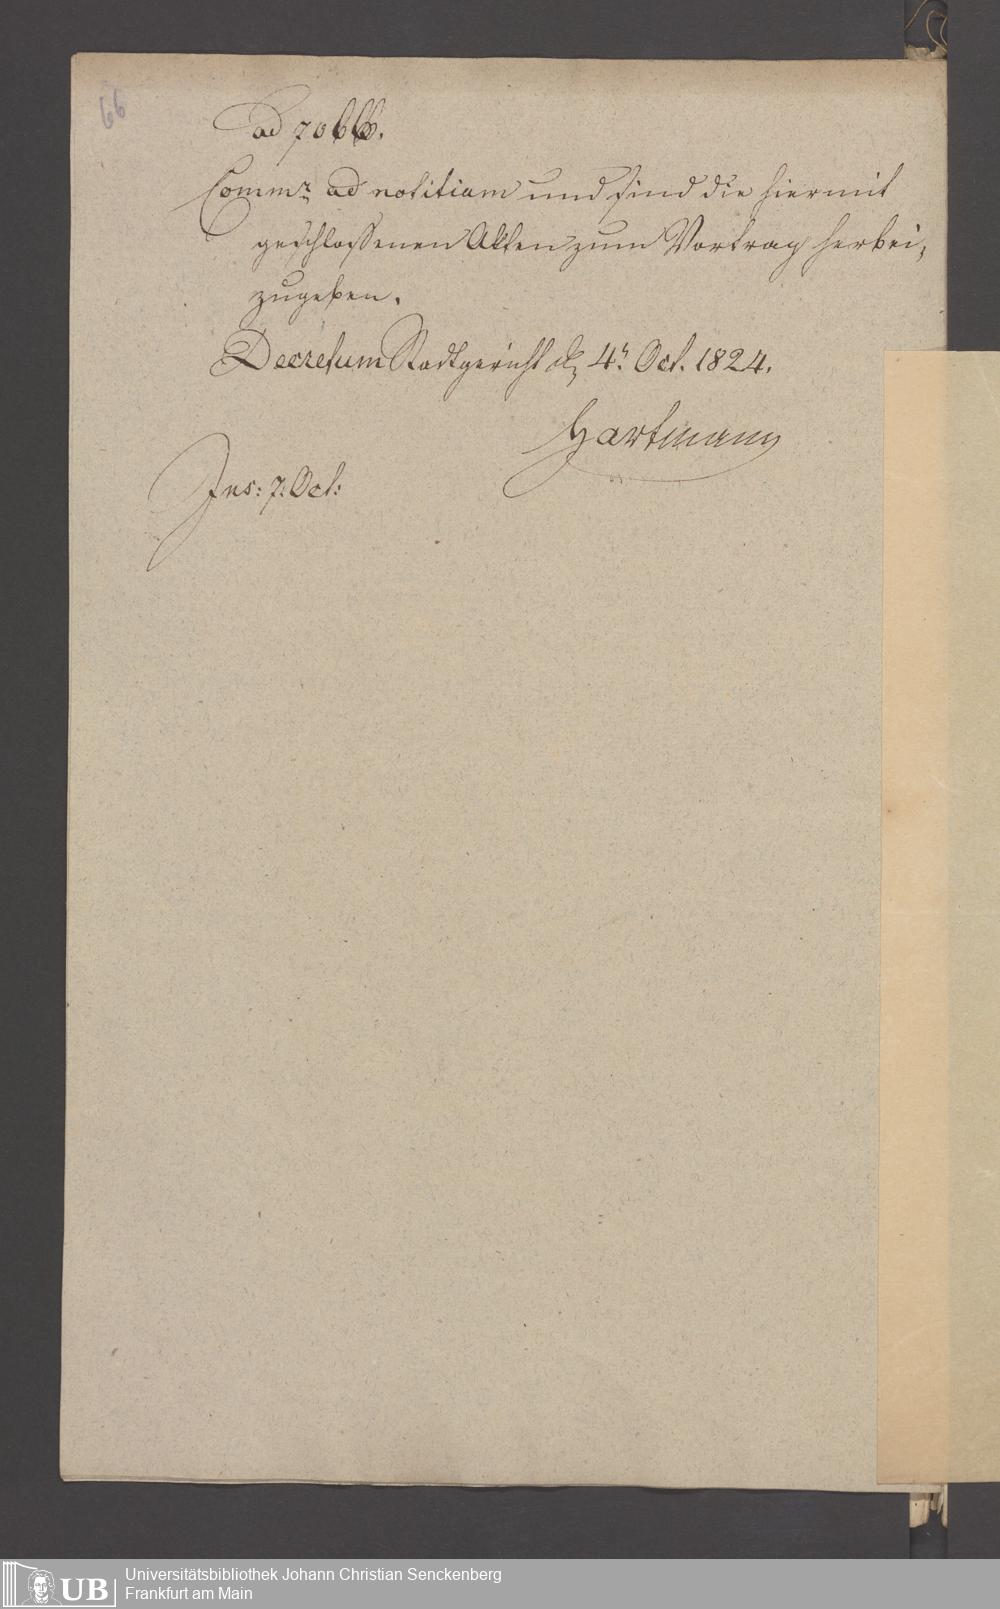 66
ad 70
Commr ad notitiam und sind die hiermit
geschlossenen Akten zum Vortrag herbei„
zugeben.
Decretum Stadtgericht d. 4r. Oct. 1824.
Hartmann
Ins: 7: Oct:
UB
Universitätsbibliothek Johann Christian Senckenberg
Frankfurt am Main